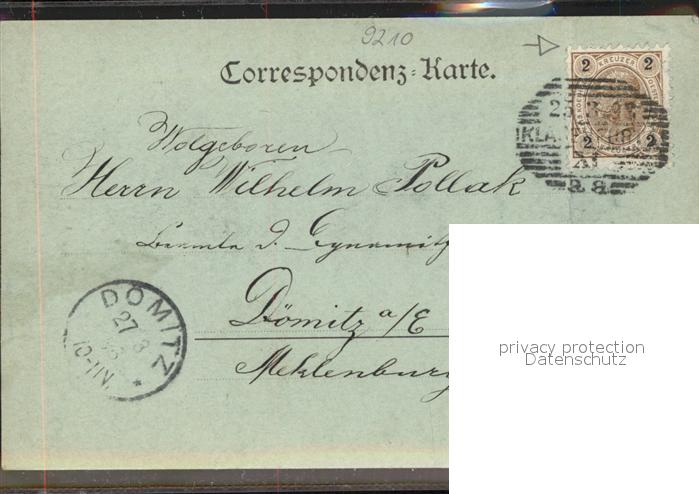 9210
Correspondenz-Karte.
2 KREUZER 2
2 2
25
KLA
Wolgeboren
Herrn Wilhelm Pollak
Beamte d. Dynamitf
Dömitz a/E
Meklenburg
DÖMITZ
27 8
10-11N.
*
privacy protection
Datenschutz